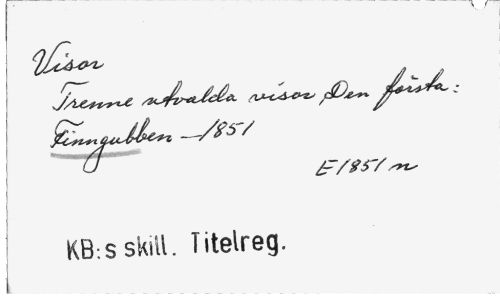 Visor
Trenne utvalda visor, Den första:
Finngubben — 1851
E1851 n
KB:s skill. Titelreg.